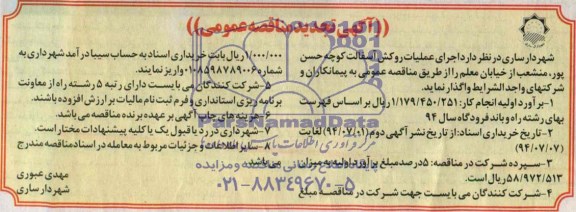 ((آگهی تجدید مناقصه عمومی))
شهردار ساری در نظر دارد اجرای عملیات روکش آسفالت کوچه حسن
پور، منشعب از خیابان معلم را از طریق مناقصه عمومی به پیمانکاران و
شرکتهای واجد الشرایط واگذار نماید.
۱-برآورد اولیه انجام کار: ۱/۱۷۹/۴۵۰/۲۵۱ریال بر اساس فهرست
بهای رشته راه و باند فرودگاه سال ۹۴
۲-تاریخ خریداری اسناد:از تاریخ نشر آگهی دوم(۹۴/۰۷/۰۱) لغایت
(۹۴/۰۷/۰۷)
۳-سپرده شرکت در مناقصه: ۵درصد مبلغ برآورد اولیه به میزان
۵۸/۹۷۲/۵۱۳ریال می باشد.
۴-شرکت کنندگان می بایست جهت شرکت در مناقصه مبلغ
۱/۰۰۰/۰۰۰ ریال بابت خریداری اسناد به حساب سیبا درآمد شهرداری به
شماره ۰۱۰۸۵۹۸۷۸۹۰۰۶ واریز نمایند.
۵-شرکت کنندگان می بایست دارای رتبه ۵ رشته راه از معاونت
برنامه ریزی استانداری و فرم ثبت نام مالیات بر ارزش افزوده باشند.
۶-هزینه های چاپ آگهی بر عهده برنده مناقصه می باشد.
۷-شهرداری در رد یا قبول یک یا کلیه پیشنهادات مختار است.
سایر اطلاعات و جزئیات مربوط به معامله در اسناد مناقصه مندرج
می باشد.
مهدی عبوری
شهردار ساری
ParsNamadData
۰۲۱-۸۸۳۴۹۶۷۰-۵